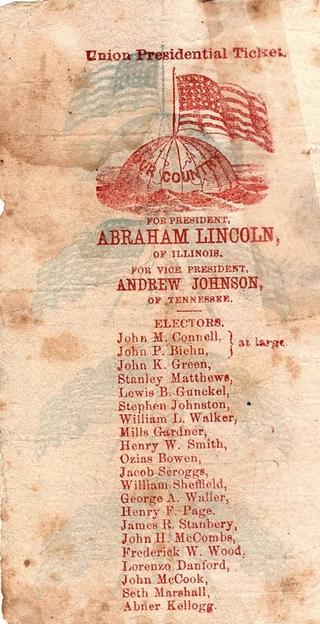 Union Presidential Ticket.
OUR COUNTRY
FOR PRESIDENT,
ABRAHAM LINCOLN,
OF ILLINOIS.
FOR VICE PRESIDENT,
ANDREW JOHNSON,
OF TENNESSEE.
ELECTORS.
John M. Connell,
John P. Biehn,
at large
John K. Green,
Stanley Matthews,
Lewis B. Gunckel,
Stephen Johnston,
William L. Walker,
Mills Gardner,
Henry W. Smith,
Ozias Bowen,
Jacob Scroggs,
William Sheffield,
George A. Waller,
Henry F. Page.
James R. Stanbery,
John H. McCombs,
Frederick W. Wood,
Lorenzo Danford,
John McCook,
Seth Marshall,
Abner Kellogg.